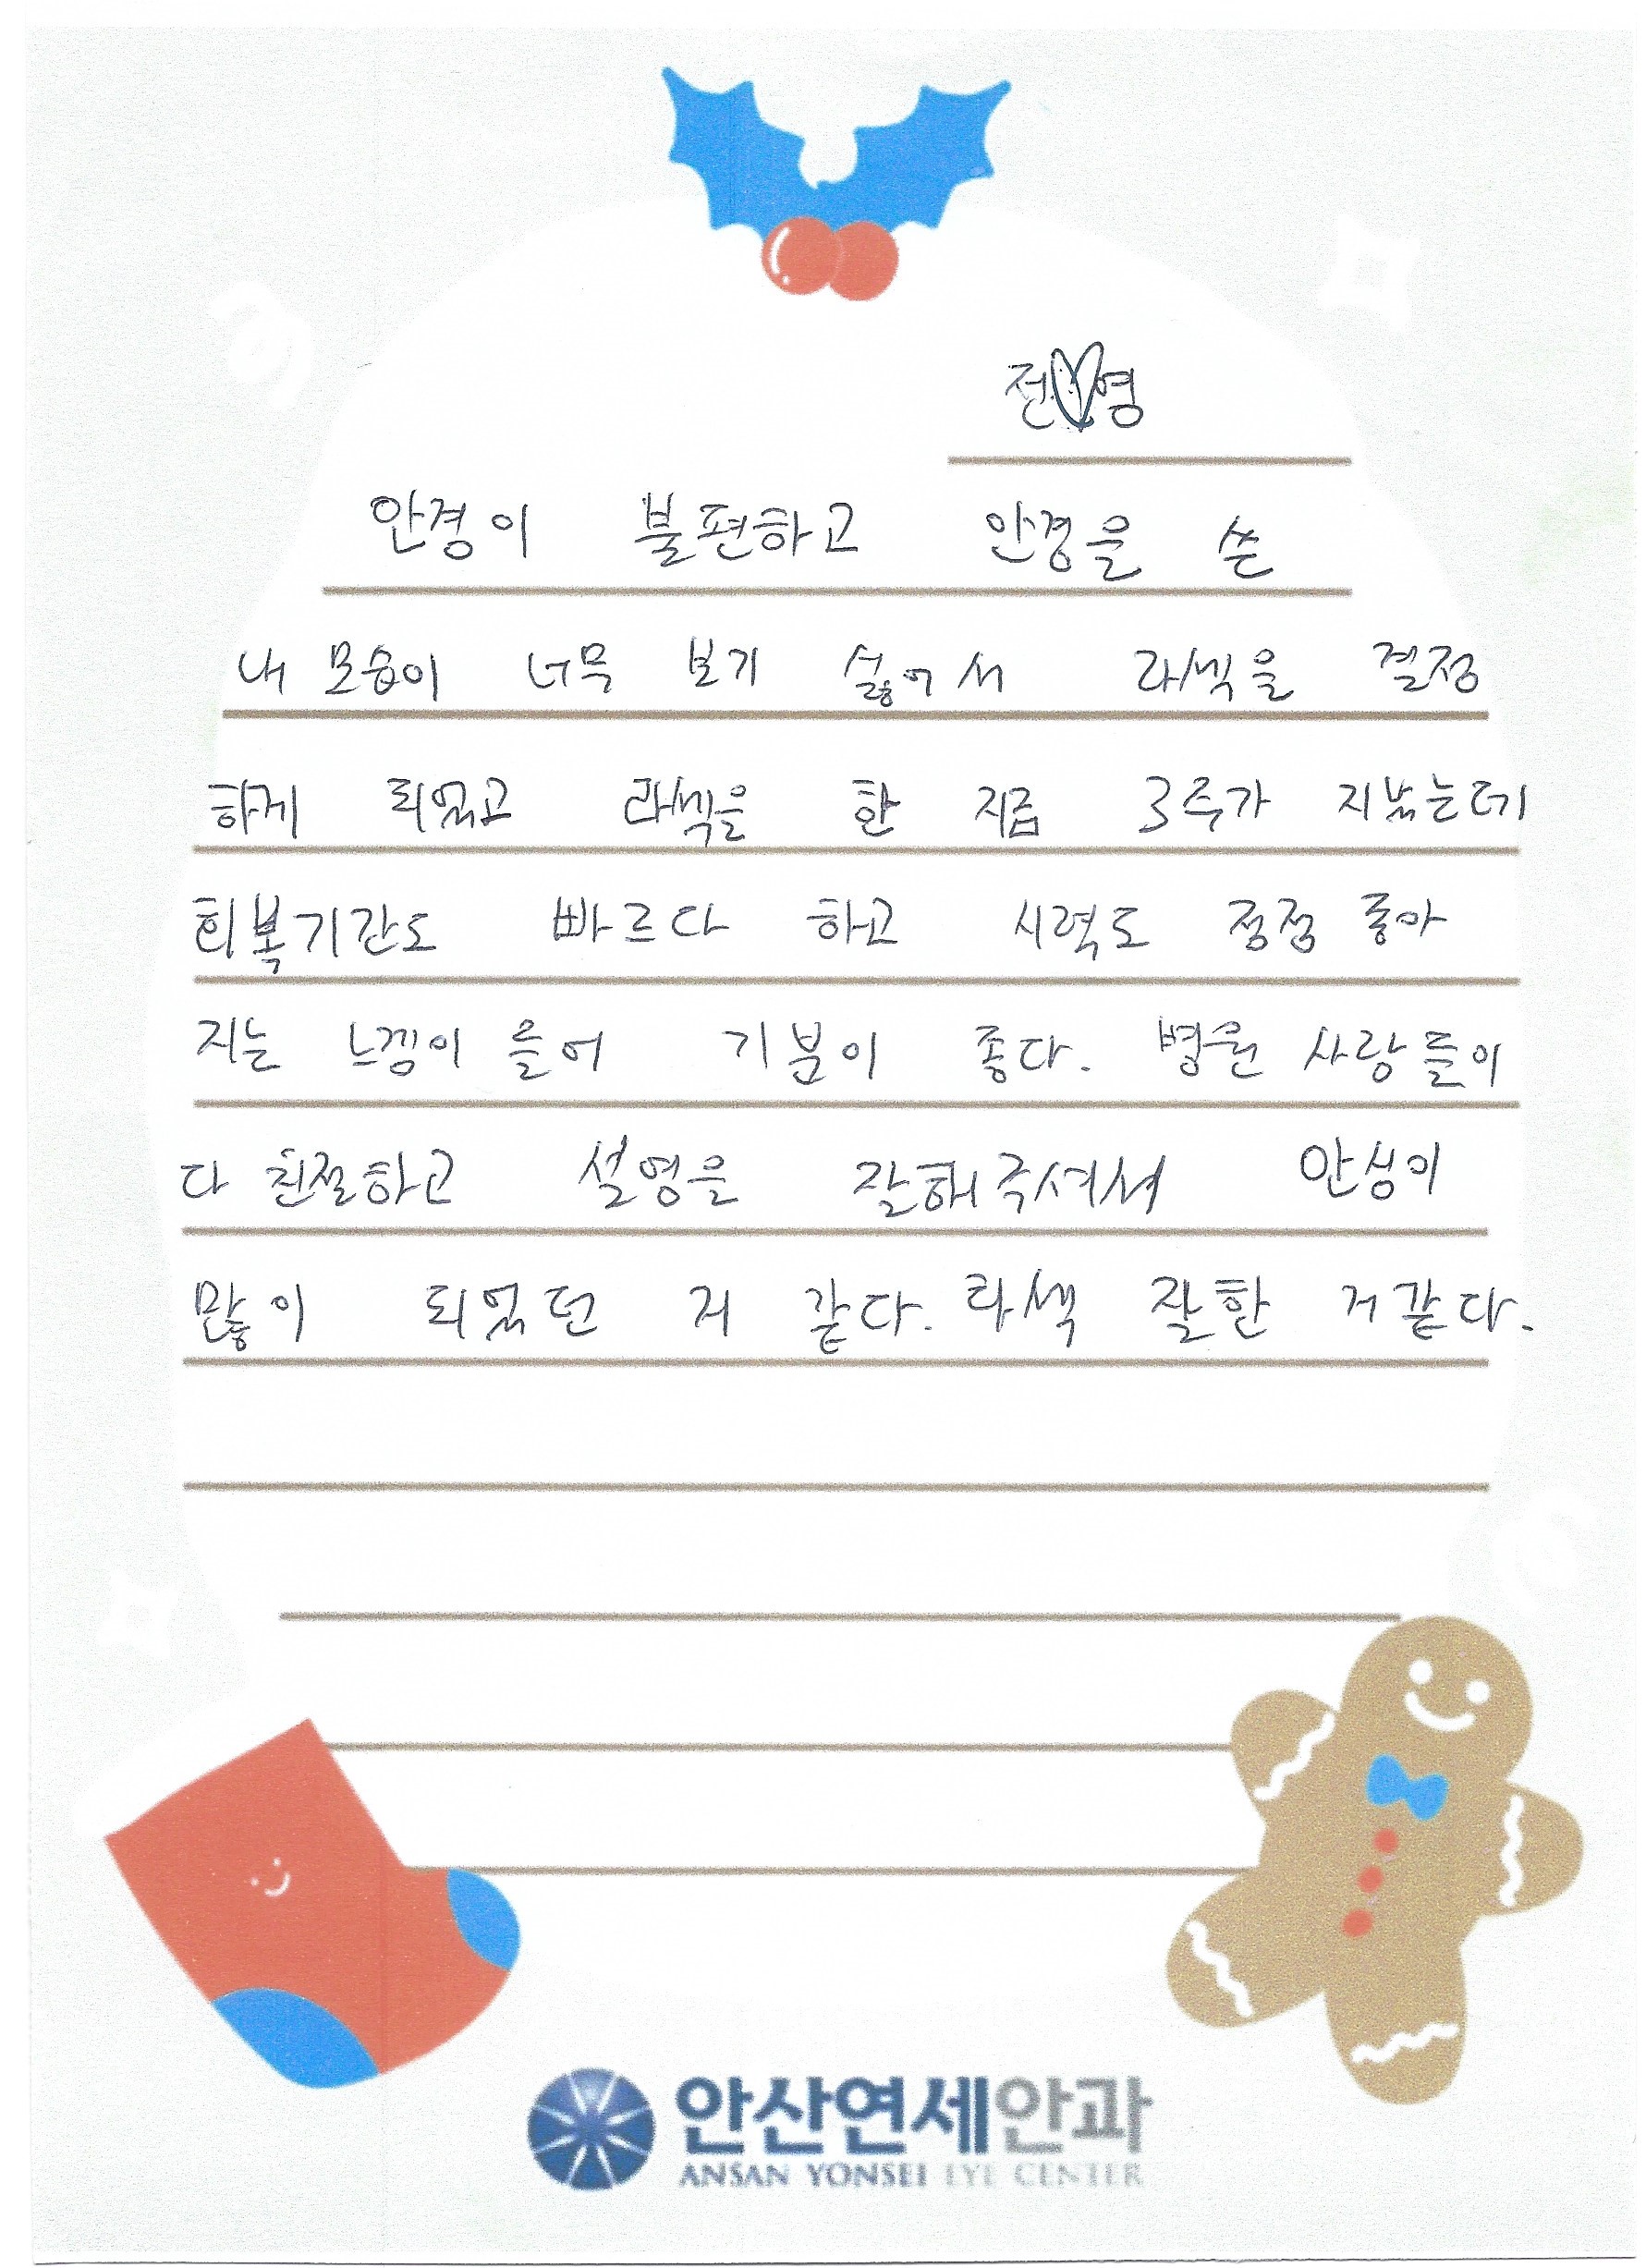 전♡영
안경이 불편하고 안경을 쓴
내 모습이 너무 보기 싫어서 라섹을 결정
하게 되었고 라섹을 한 지금 3주가 지났는데
회복기간도 빠르다 하고 시력도 점점 좋아
지는 느낌이 들어 기분이 좋다. 병원 사람들이
다 친절하고 설명을 잘해주셔서 안심이
많이 되었던 거 같다. 라섹 잘한 거같다.
안산연세안과
ANSAN YONSEI EYE CENTER